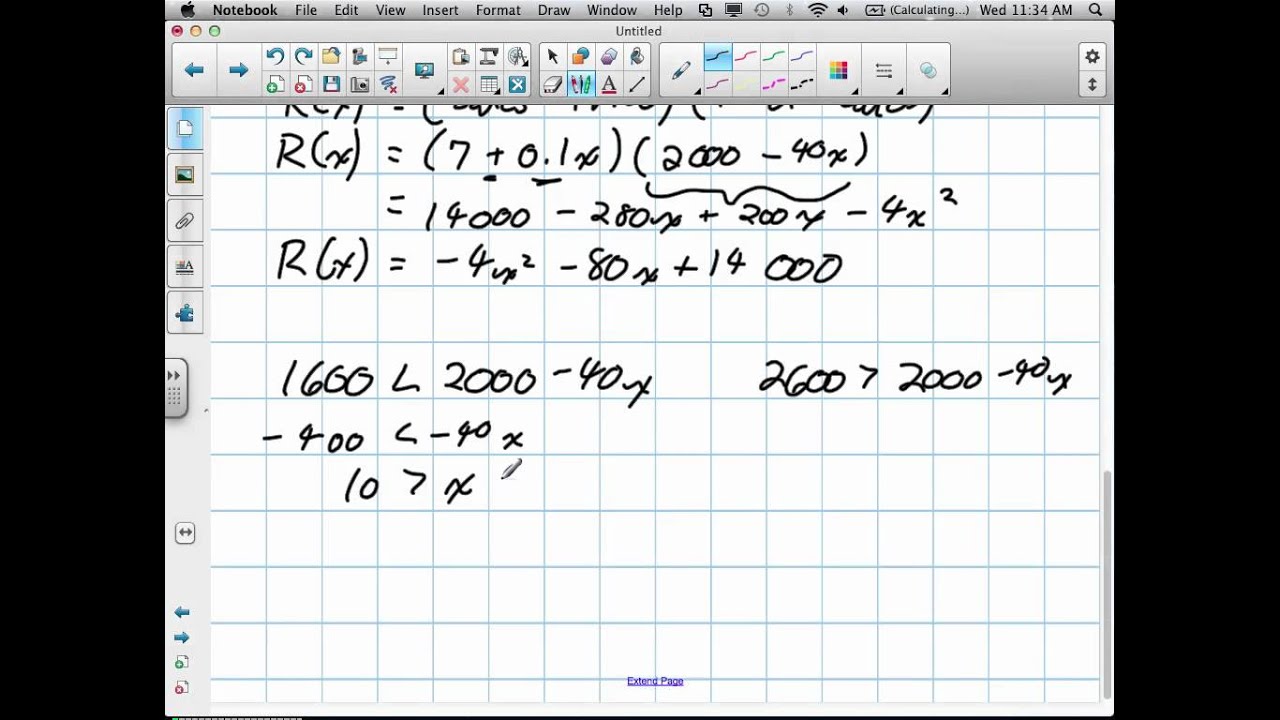 Notebook File Edit View Insert Format Draw Window Help (Calculating...) Wed 11:34 AM
Untitled
R(x) = (
R(x) = (7 + 0.1x)(2000 - 40x)
= 14000 - 280x + 200x - 4x²
R(x) = -4x² - 80x + 14 000
1600 < 2000 - 40x 2600 > 2000 - 40x
- 400 < - 40 x
10 > x
Extend Page